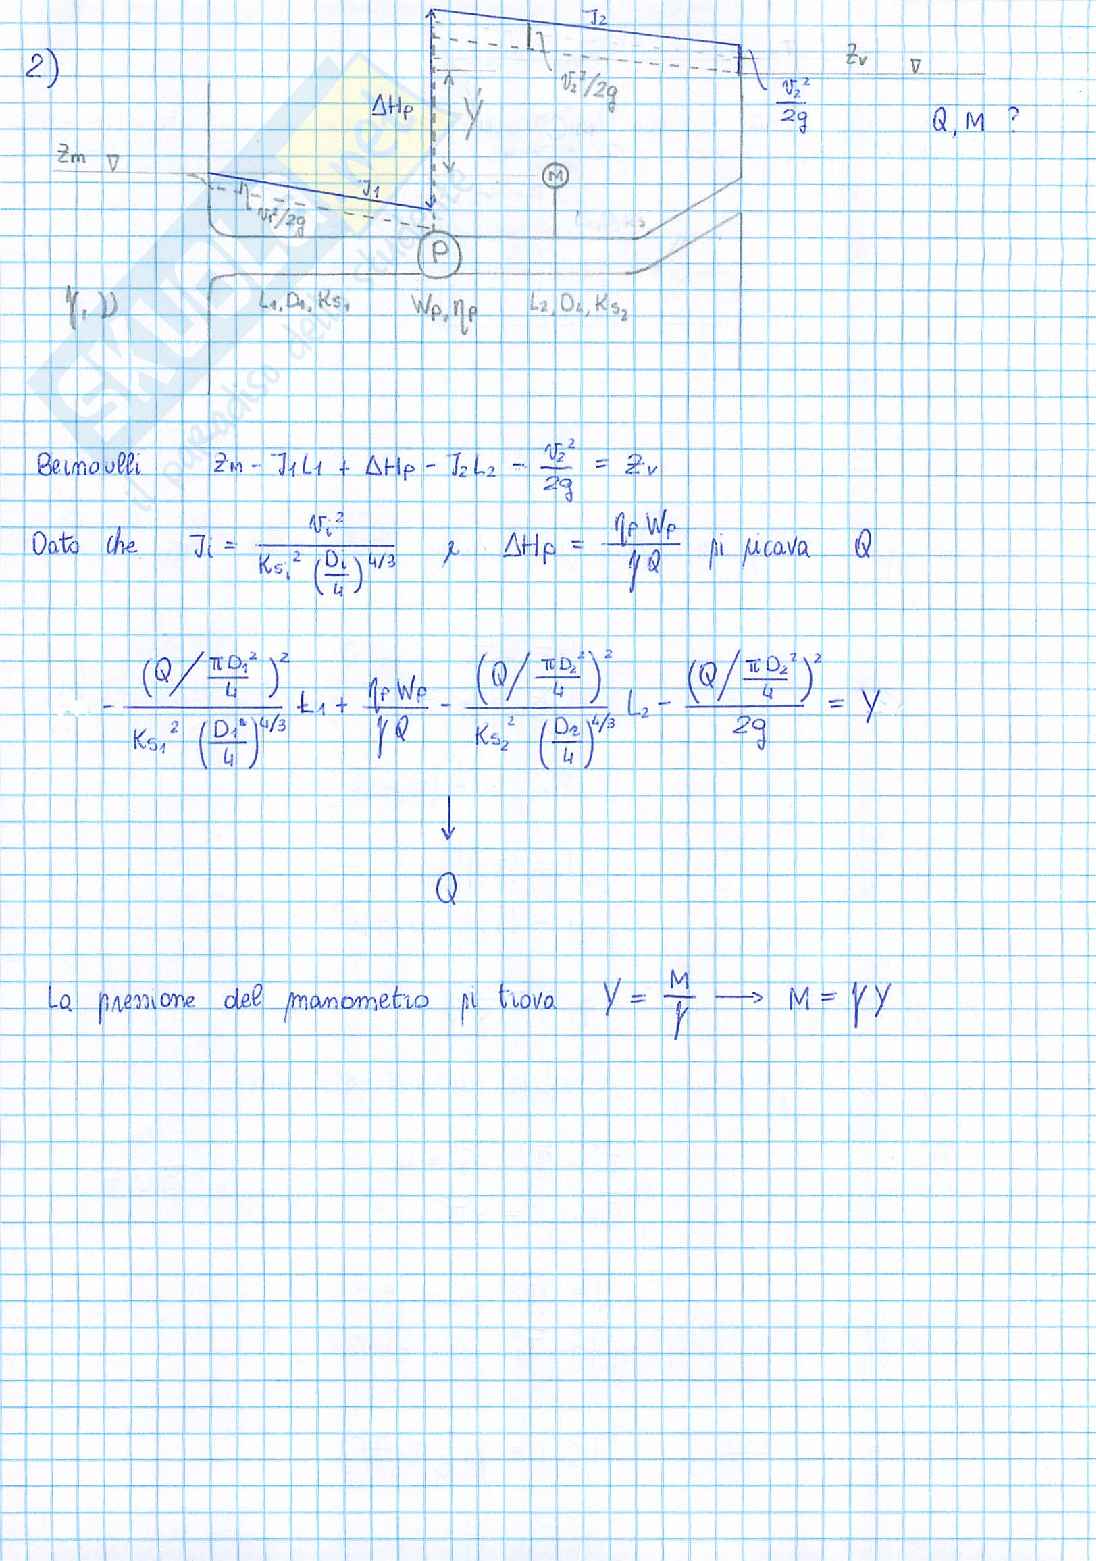 2)
J₂
Zv ▽
v₂²/2g
v₂²/2g
ΔHp
Y
Q, M ?
Zm ▽
J₁
v₁²/2g
M
P
γ, ν
L₁, D₁, Ks₁
Wp, ηp
L₂, D₂, Ks₂
Bernoulli Zm - J₁L₁ + ΔHp - J₂L₂ - v₂²/2g = Zv
Dato che Ji = vi² / (Ksi² (Di/4)^4/3) e ΔHp = ηp Wp / γQ si ricava Q
- (Q/(πD₁²/4))² / (Ks₁² (D₁/4)^4/3) L₁ + ηp Wp / γQ - (Q/(πD₂²/4))² / (Ks₂² (D₂/4)^4/3) L₂ - (Q/(πD₂²/4))² / 2g = Y
↓
Q
La pressione del manometro si trova Y = M/γ → M = γY
SKUOLA.net
il paradiso dello studente